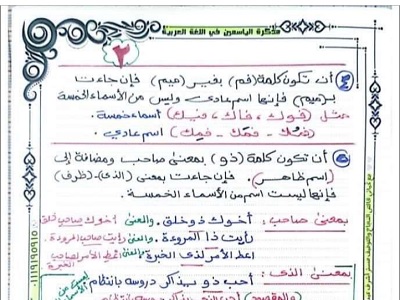 مذكرة الياسمين في اللغة العربية
٢
أن تكون كلمة (فم) بغير (ميم) فإن جاءت
بـ (ميم) فإنها اسم عادي وليس من الأسماء الخمسة
مثل (فوك، فاك، فيك) أسماء خمسة.
(فمُك - فمَك - فمِك) اسم عادي.
أن تكون كلمة (ذو) بمعنى صاحب ومضافة إلى
(اسم ظاهر). فإن جاءت بمعنى (الذي) - (ظرف)
فإنها ليست اسم من الأسماء الخمسة.
بمعنى صاحب: أخوك ذو خلق. والمعنى أخوك صاحب خلق
رأيت ذا المروءة. والمعنى رأيت صاحب المروءة.
اعط الأمر لذي الخبرة والمعنى اعط الأمر لصاحب
الخبرة
بمعنى الذي: أحب ذو يذاكر دروسه بانتظام
والمقصود
٠١١١٩١٥٩٠١٥